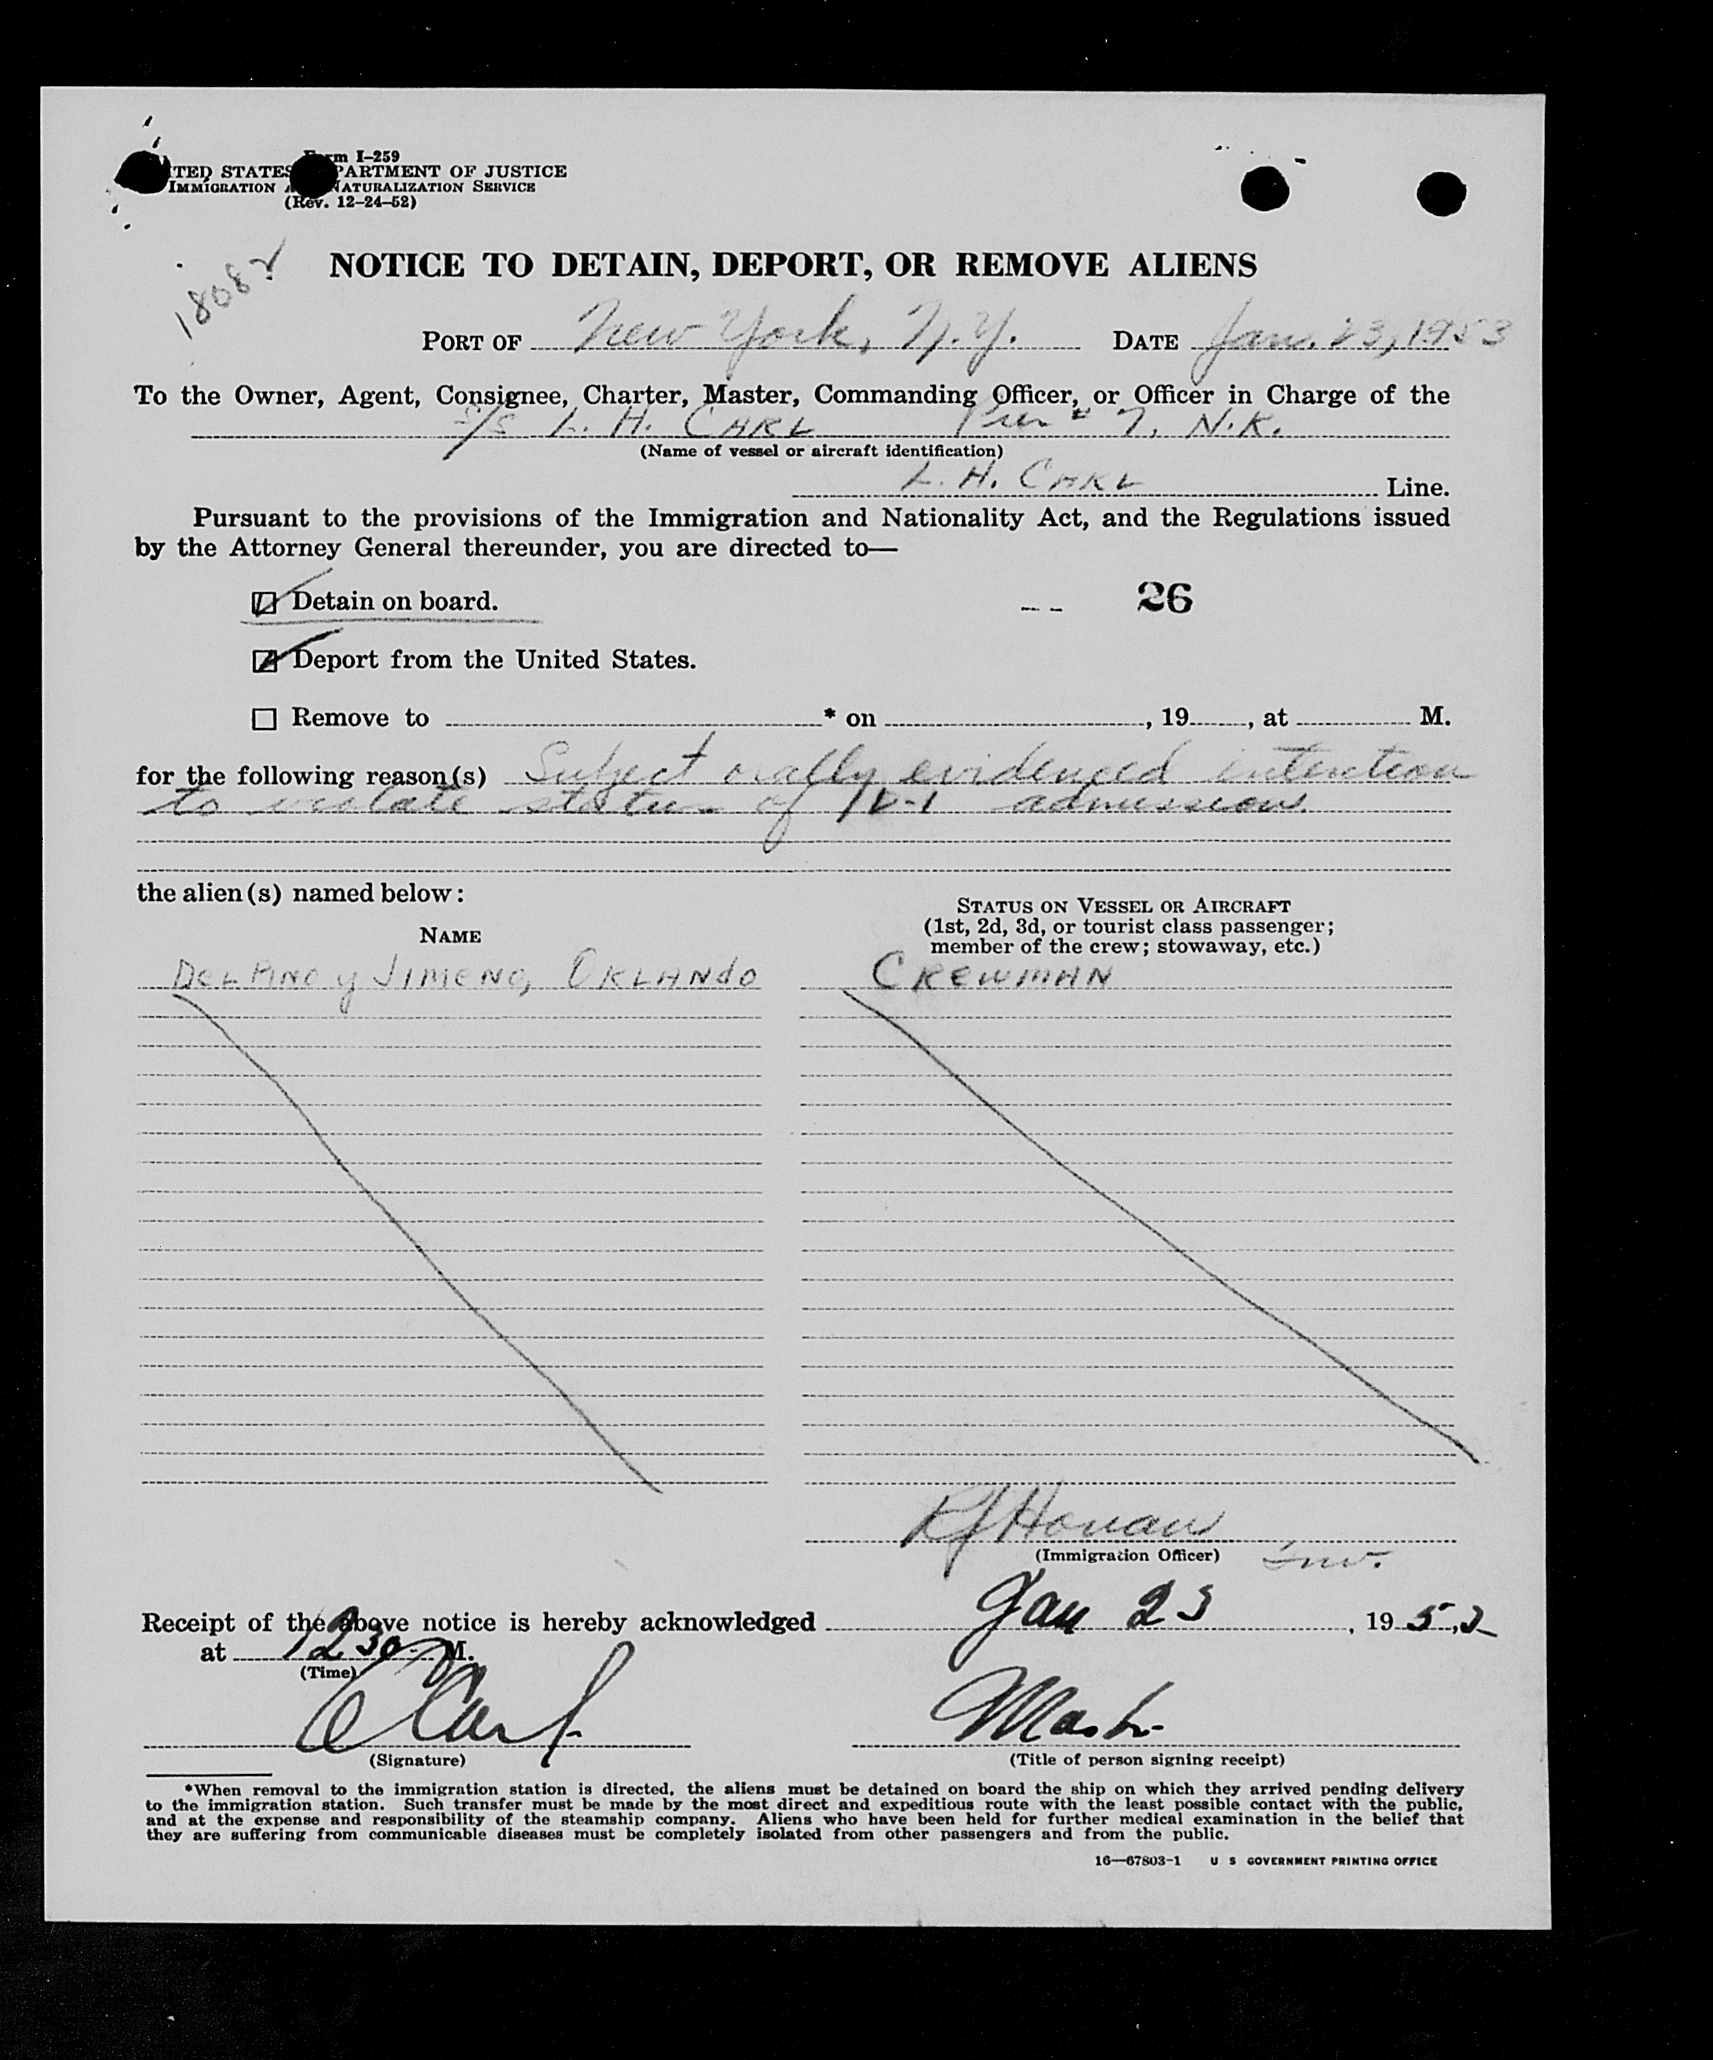 Form I-259
UNITED STATES DEPARTMENT OF JUSTICE
IMMIGRATION AND NATURALIZATION SERVICE
(Rev. 12-24-52)
18082
NOTICE TO DETAIN, DEPORT, OR REMOVE ALIENS
PORT OF New York, N.Y. DATE Jan. 23, 1953
To the Owner, Agent, Consignee, Charter, Master, Commanding Officer, or Officer in Charge of the
S/S L. H. CARL Pier # 7, N.K.
(Name of vessel or aircraft identification)
L. H. CARL Line.
Pursuant to the provisions of the Immigration and Nationality Act, and the Regulations issued
by the Attorney General thereunder, you are directed to—
Detain on board. -- 26
Deport from the United States.
Remove to * on , 19 , at M.
for the following reason(s) Subject orally evidenced intention
to violate status of admission.
the alien(s) named below:
STATUS ON VESSEL OR AIRCRAFT
NAME (1st, 2d, 3d, or tourist class passenger;
member of the crew; stowaway, etc.)
DEL PINO y JIMENO, ORLANDO CREWMAN
RJ Honan
(Immigration Officer) Inv.
Receipt of the above notice is hereby acknowledged Jan 23, 1953
at 1230 M.
(Time)
Master
(Signature) (Title of person signing receipt)
*When removal to the immigration station is directed, the aliens must be detained on board the ship on which they arrived pending delivery
to the immigration station. Such transfer must be made by the most direct and expeditious route with the least possible contact with the public,
and at the expense and responsibility of the steamship company. Aliens who have been held for further medical examination in the belief that
they are suffering from communicable diseases must be completely isolated from other passengers and from the public.
16—67803-1 U S GOVERNMENT PRINTING OFFICE